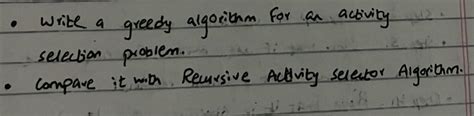 • Write a greedy algorithm for an activity
selection problem.
• Compare it with Recursive Activity selector Algorithm.